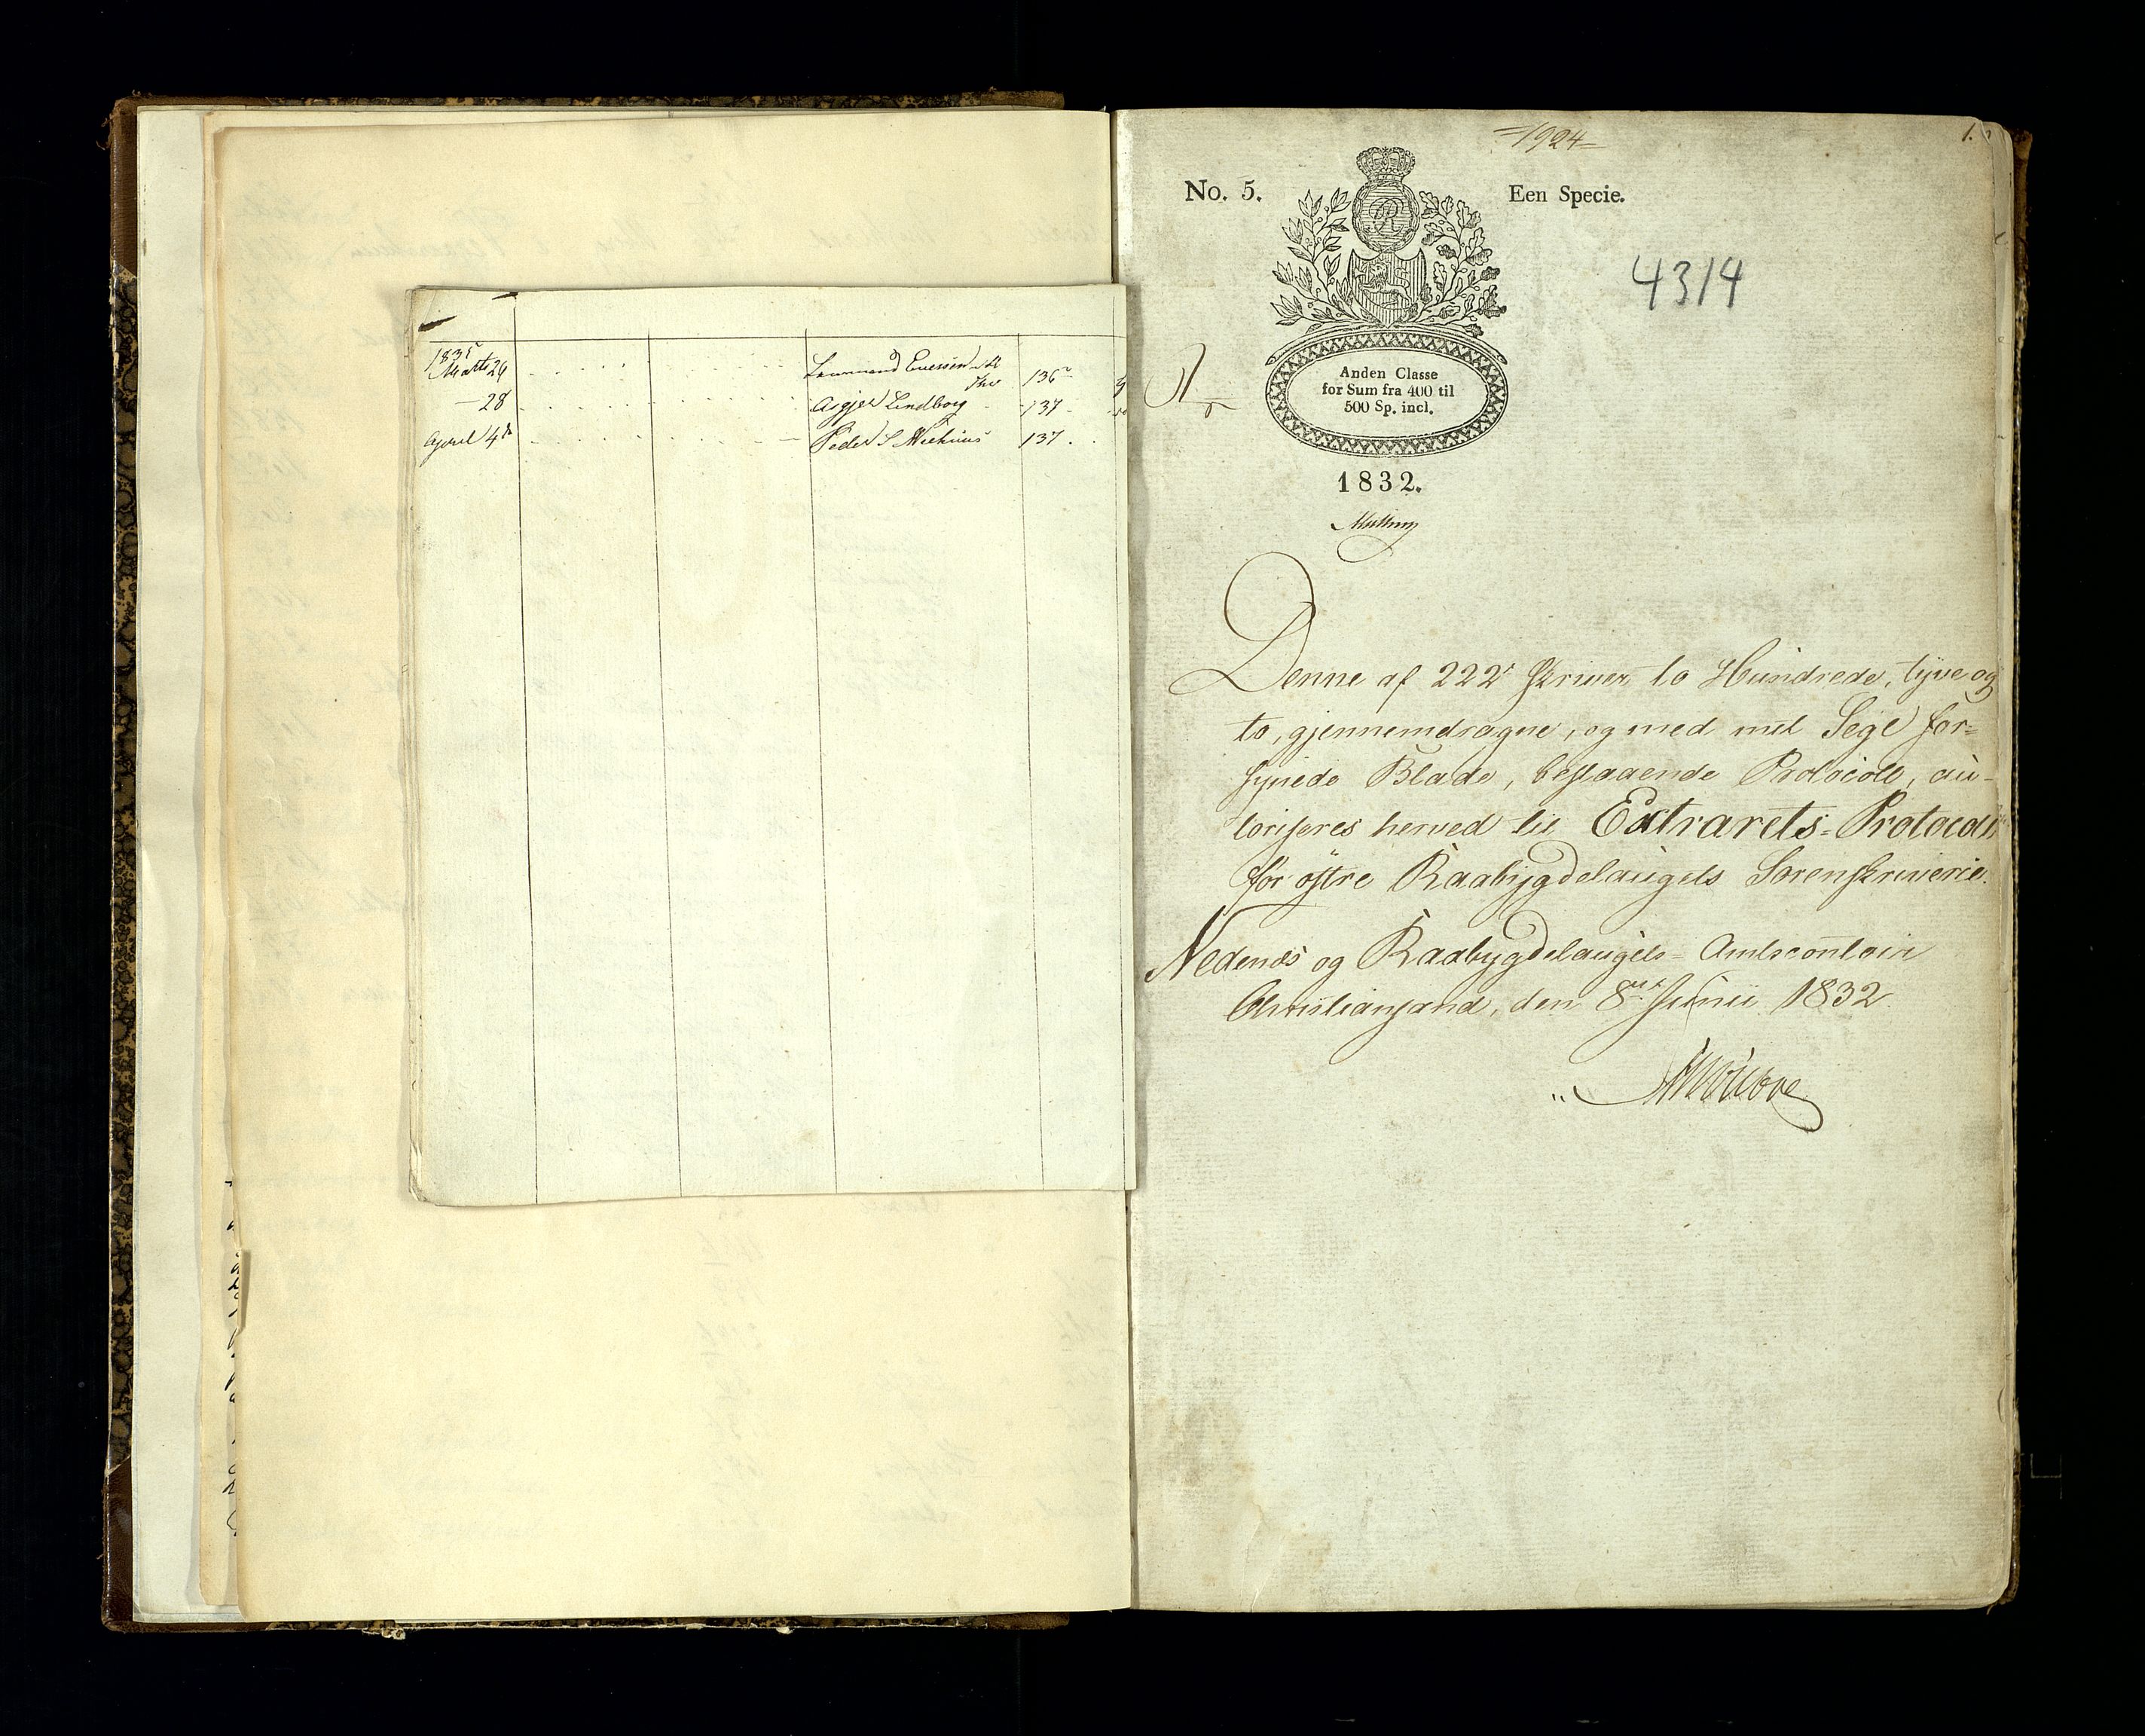 1835
Marts 26 136
— 28 Asgjer Lindborg 137
April 4de Peder S 137.
=1924=
1.
No. 5.
Een Specie.
4314
Anden Classe
for Sum fra 400 til
500 Sp. incl.
1832.
Denne af 222 skriver to Hundrede, tyve og
to, gjennemdragne, og med mit Segl for-
synede Blade, bestaaende Protocoll, au-
toriseres herved til Extrarets-Protocoll
for østre Raabygdelaugets Sorenskriverie.
Nedenes og Raabygdelaugets Amtscontoir
Christiansand, den 8de Junii 1832.